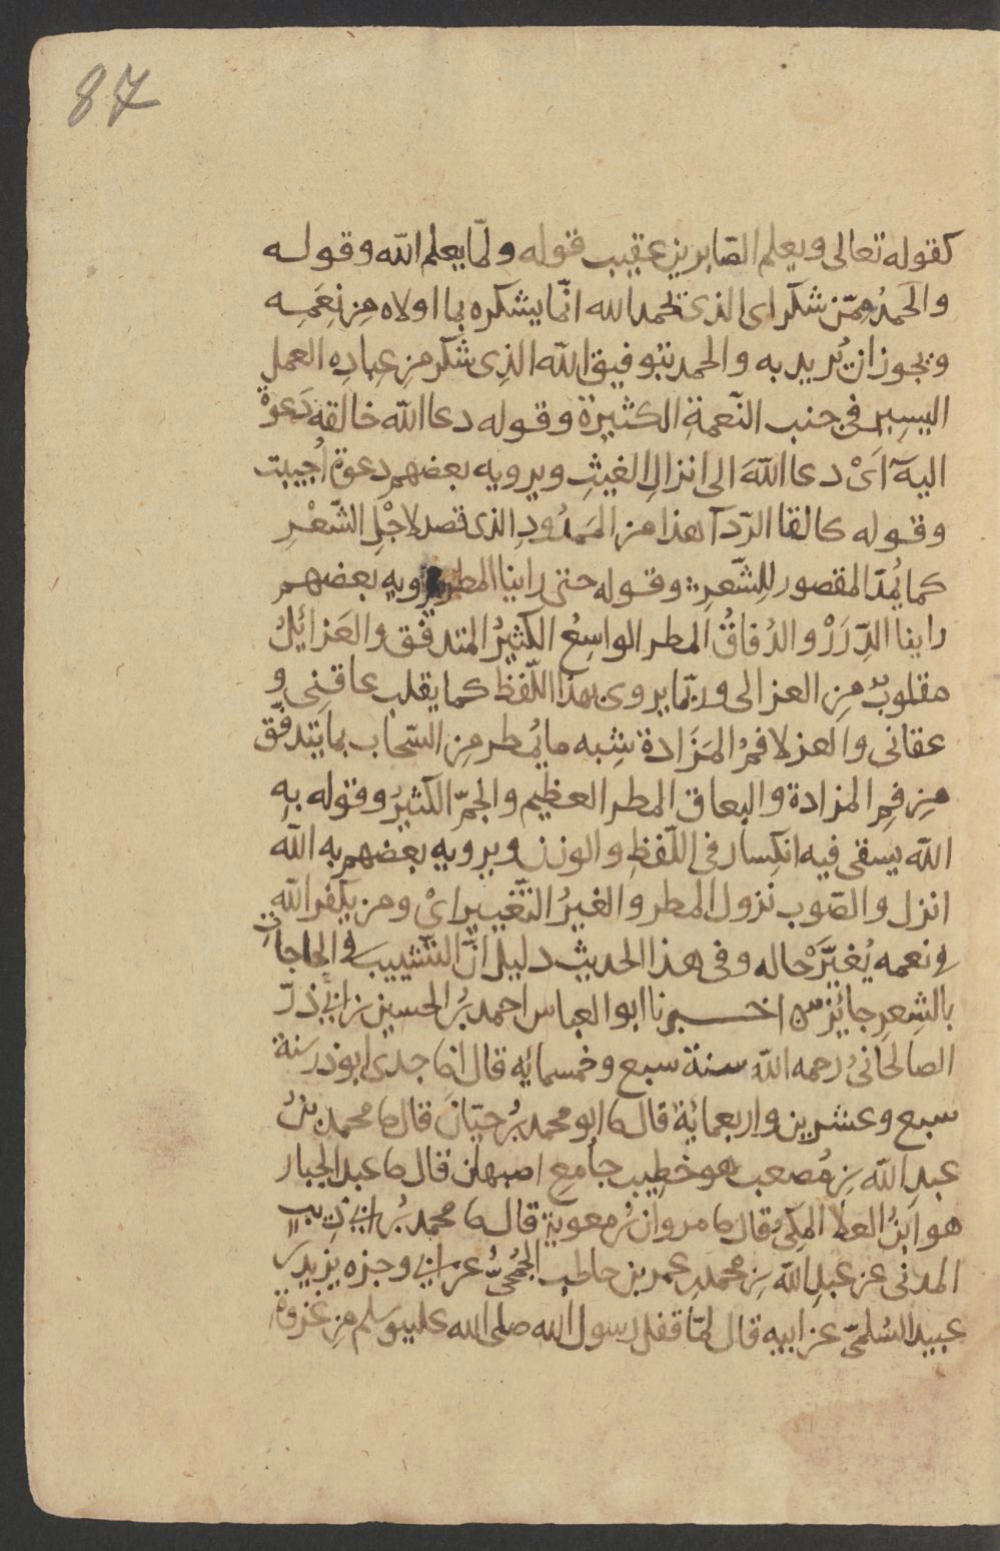 87
كقوله تعالى ويعلم الصّابرين عقيب قوله ولمّا يعلم الله وقوله
والحَمدُ مِمّن شكر اى الذى تحمد الله انّما يشكره بما اولاه مِن نِعَمِه
ويجوز ان يُريد به والحمد بتوفيق الله الذِى شكر مِن عِبادِه العمل
اليسِير فى جنب النّعمةِ الكثيرة وقوله دعا الله خالقه دَعوةً
اليهِ اَىْ دعا اللهَ الى انزالِ الغيثِ ويرويه بعضهم دعوة اُجيبت
وقوله كالقا الرّدآ هذا من المَمدُودِ الذى قصد لاجْلِ الشّعْرِ
كما يُمَدّ المقصور للِشّعرِ وقوله حتى راينا المطر ويرويه بعضهم
راينا الدِّرَرْ والدُفاقُ المطر الواسِعُ الكثيرُ المتدفّق والعَزائلُ
مقلوبٌ مِن العزالى وربّما يروى بهذا اللّفظ كما يقلب عاقنِى و
عقانى والعزلا فمُ المَزَادة شِبه ما يُمطر مِن السّحاب بما يتدفّق
مِن فمِ المزادة والبعاق المطر العظيم والجمّ الكثيرُ وقوله بهِ
الله يسقى فيه انكِسار فى اللّفظِ والوزن ويرويه بعضهم به الله
انزل والصّوب نزول المطر والغيرُ التّغيير اىْ ومن يكفر الله
فى نعمه يُغيَّرْ حاله وفى هذا الحديث دليل انّ التّشبيب فى الحاجاتِ
بالشِعرِ جائز اخبرنا ابو العباس احمد بنُ الحسين بن ابى ذرّ
الصالحانىُ رحمه الله سنة سبع وخمسمائه قال انا جدى ابو ذر سنة
سبع وعشرين واربعمائة قال نا ابو محمد بنُ حيّان قال نا محمد بنُ
عبدِ الله بن مُصعب هو خطِيب جامع اصبهان قال نا عبد الجبار
هو ابنُ العلا المكىُ قال نا مروان بنُ معوية قال نا محمد بنُ ابى ذِيب
المدنى عن عبدِ الله بن محمد بن عمر بن حاطب الجُمَحِىُّ عن ابى وجزه يزيد بن
عبيد السّلمىّ عن ابيه قال لمّا قفل رسول الله صلى الله عليه وسلم مِن غزوةِ